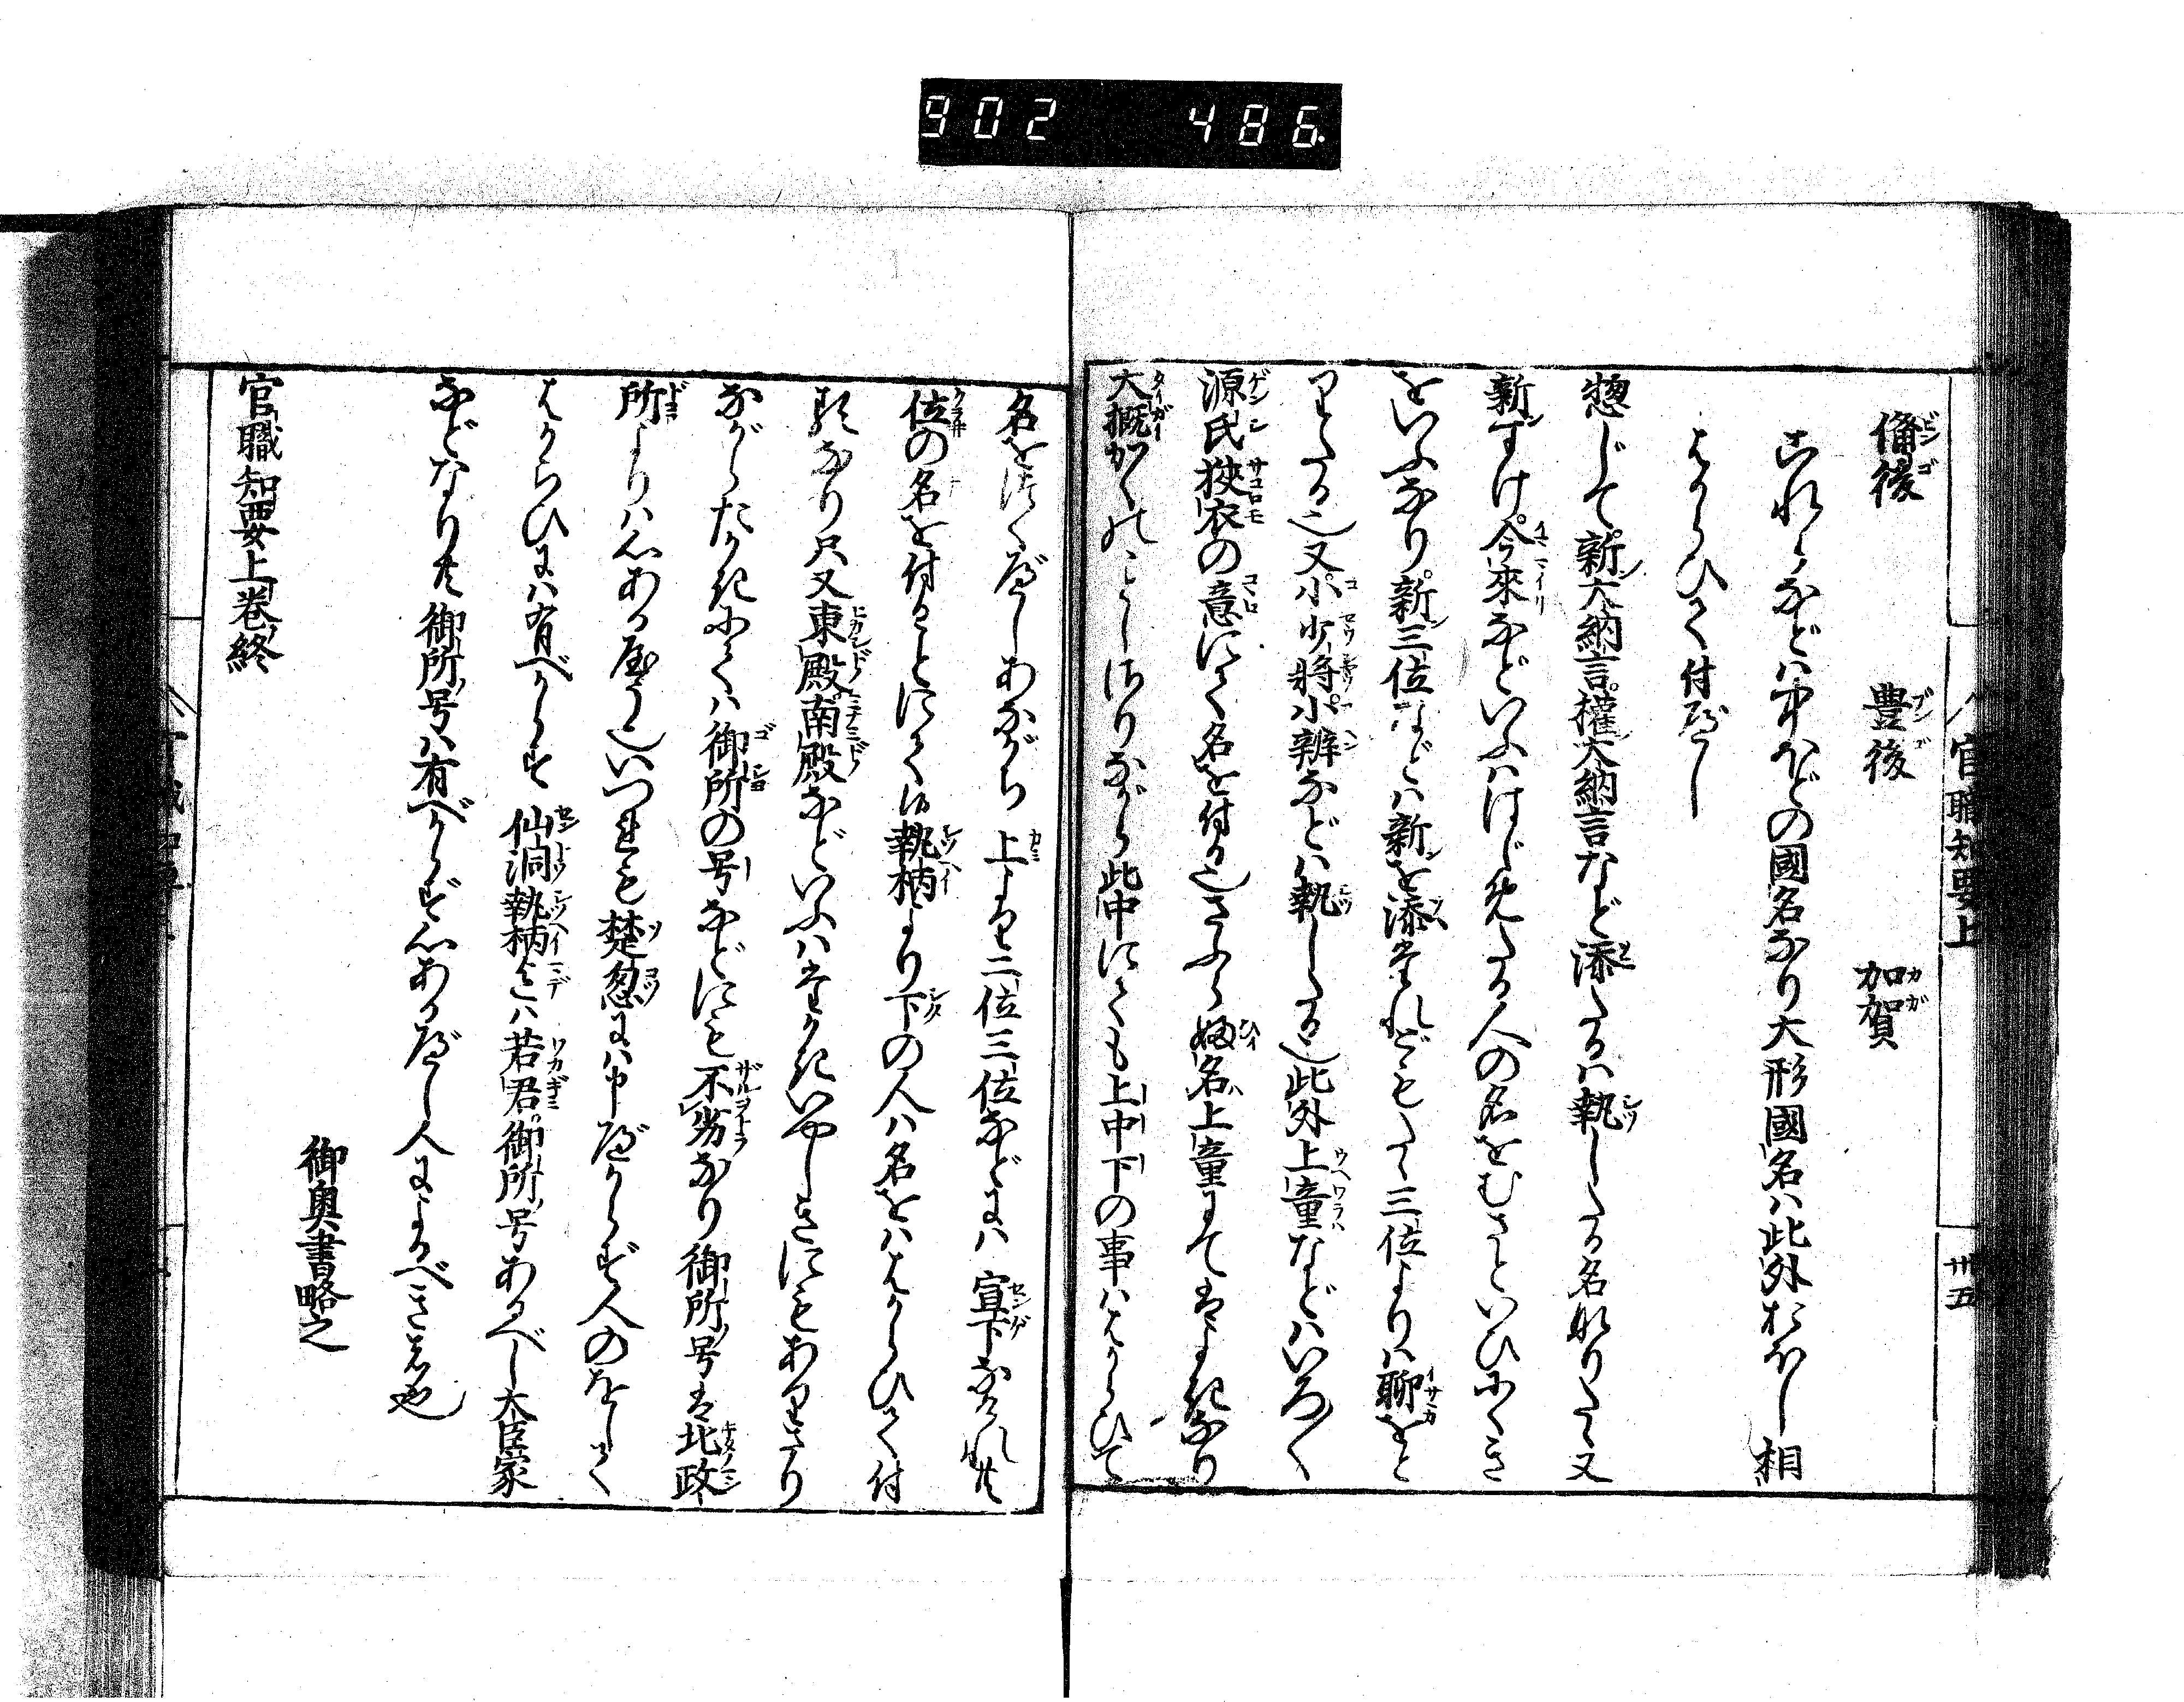 902 486.
官職知要上
卅五
備後 豊後 加賀
これらなどは中ほどの國名なり大形國名ハ此外おほし相
はからひて付べし
惣じて新大納言權大納言など添たるハ執したる名なりたゞ又
新すけ今來などいふハはじめたる人の名をむさといひにくき
をいふなり新三位などハ新を添たれどもたゞ三位よりハ聊をと
りたる也又小少將小辨などハ執したる也此外上童などハいろ〳〵
源氏狹衣の意にて名を付る也さふら婢名上童にてはよきなり
大概かくのことし御りながら此中にても上中下の事ハはからひて
名をつくべしあながち上より二位三位などにハ宣下なけれ共
位の名を付ることにて候執柄より下の人ハ名をハはからひて付
るなり只又東殿南殿などいふハたかきいやしきにもあり
ながらたかきにてハ御所の号などにも不劣なり御所号は北政
所よりハ心あるやう也いつれも楚忽にハ申べからず人のをして
はからひにハ有べからず仙洞執柄まてハ若君御所号あるべし大臣家
などなり共御所号ハ有べからず心あるべし人によるべき者也
御奥書略之
官職知要上卷終